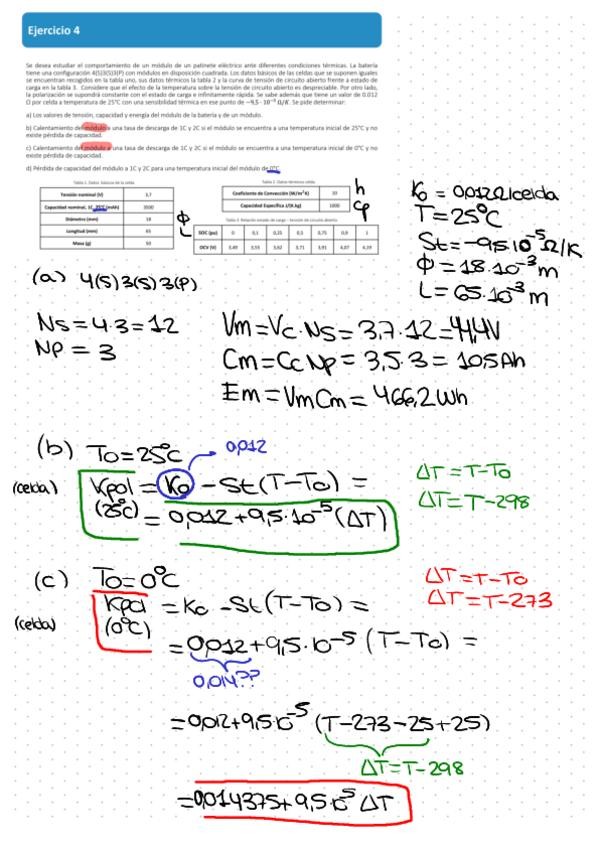 Ejercicio 4
Se desea estudiar el comportamiento de un módulo de un patinete eléctrico ante diferentes condiciones térmicas. La batería
tiene una configuración 4(S)3(S)3(P) con módulos en disposición cuadrada. Los datos básicos de las celdas que se suponen iguales
se encuentran recogidos en la tabla uno, sus datos térmicos la tabla 2 y la curva de tensión de circuito abierto frente a estado de
carga en la tabla 3. Considere que el efecto de la temperatura sobre la tensión de circuito abierto es despreciable. Por otro lado,
la polarización se supondrá constante con el estado de carga e infinitamente rápida. Se sabe además que tiene un valor de 0.012
Ω por celda a temperatura de 25°C con una sensibilidad térmica en ese punto de −9,5 · 10⁻⁵ Ω/K. Se pide determinar:
a) Los valores de tensión, capacidad y energía del módulo de la batería y de un módulo.
b) Calentamiento del módulo a una tasa de descarga de 1C y 2C si el módulo se encuentra a una temperatura inicial de 25°C y no
existe pérdida de capacidad.
c) Calentamiento del módulo a una tasa de descarga de 1C y 2C si el módulo se encuentra a una temperatura inicial de 0°C y no
existe pérdida de capacidad.
d) Pérdida de capacidad del módulo a 1C y 2C para una temperatura inicial del módulo de 0°C.
Tabla 1. Datos básicos de la celda
Tensión nominal (V) 3,7
Capacidad nominal, 1C, 25°C (mAh) 3500
Diámetro (mm) 18
Longitud (mm) 65
Masa (g) 50
Φ
L
Tabla 2. Datos térmicos celda
Coeficiente de Convección (W/m²K) 10
Capacidad Específica (J/(K.kg) 1000
h
Cp
Tabla 3. Relación estado de carga – tensión de circuito abierto
SOC (pu) 0 0,1 0,25 0,5 0,75 0,9 1
OCV (V) 3,49 3,55 3,62 3,71 3,91 4,07 4,19
K0 = 0,012Ω/celda
T = 25°C
St = -9,5·10⁻⁵ Ω/K
Φ = 18·10⁻³ m
L = 65·10⁻³ m
(a) 4(S)3(S)3(P)
Ns = 4·3 = 12
Np = 3
Vm = Vc·Ns = 3,7·12 = 44,4V
Cm = Cc Np = 3,5·3 = 10,5Ah
Em = Vm Cm = 466,2 Wh
(b) To = 25°C
0,012
(celda)
Kpol = K0 - St (T-To) =
(25°C) = 0,012 + 9,5·10⁻⁵ (ΔT)
ΔT = T-To
ΔT = T-298
(c) To = 0°C
(celda)
Kpol = Ko - St (T-To) =
(0°C)
ΔT = T-To
ΔT = T-273
= 0,012 + 9,5·10⁻⁵ (T-To) =
0,014??
= 0,012 + 9,5·10⁻⁵ (T-273-25+25)
ΔT = T-298
= 0,014375 + 9,5·10⁻⁵ ΔT